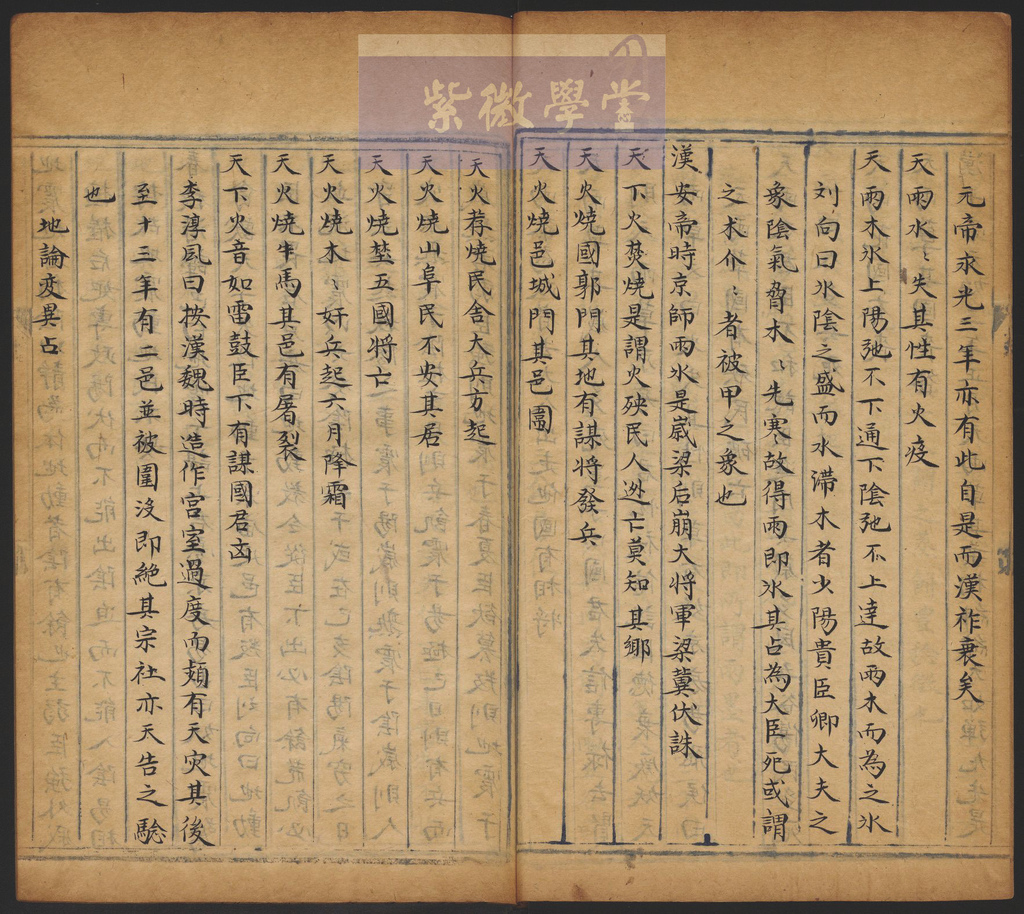 紫微學堂
元帝永光三年亦有此自是而漢祚衰矣
天雨水〻失其性有火疫
天雨木氷上陽弛不下通下陰弛不上達故雨木而為之氷
刘向曰氷陰之盛而水滯木者少陽貴臣卿大夫之
象陰氣脅木〻先寒故得雨即氷其占為大臣死或謂
之木介〻者被甲之象也
漢安帝時京師雨氷是嵗梁后崩大将軍梁冀伏誅
天下火焚燒是謂火殃民人迯亡莫知其鄉
天火燒國郭門其地有謀将發兵
天火燒邑城門其邑圍
天火荐燒民舍大兵方起
天火燒山阜民不安其居
天火燒埜五國将亡
天火燒木〻奸兵起六月降霜
天火燒牛馬其邑有屠裂
天下火音如雷鼓臣下有謀國君凶
李淳風曰按漢魏時造作宮室過度而頻有天灾其後
至十三年有二邑並被圍没即絶其宗社亦天告之騐
也
地論変異占